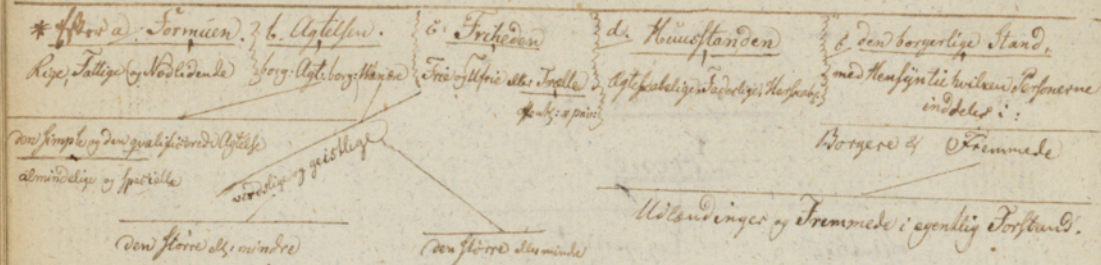 * Efter a. Formuen.
Rige, Fattige og Nødlidende
b. Agtelsen.
borg: Agt: borg: Vanære
den simple og den qvalificerede Agtelse
almindelige og specielle
verdslige og geistlige
den større ell: mindre
den større eller mindre
c. Friheden
Frie og Ufrie ell: Trælle
d. Huusstanden
Ægteskabelige, Faderlige, Herskab:
e. den borgerlige Stand,
med Hensyn til hvilken Personerne
inddeles i:
Borgere & Fremmede
Udlændinger og Fremmede i egentlig Forstand.